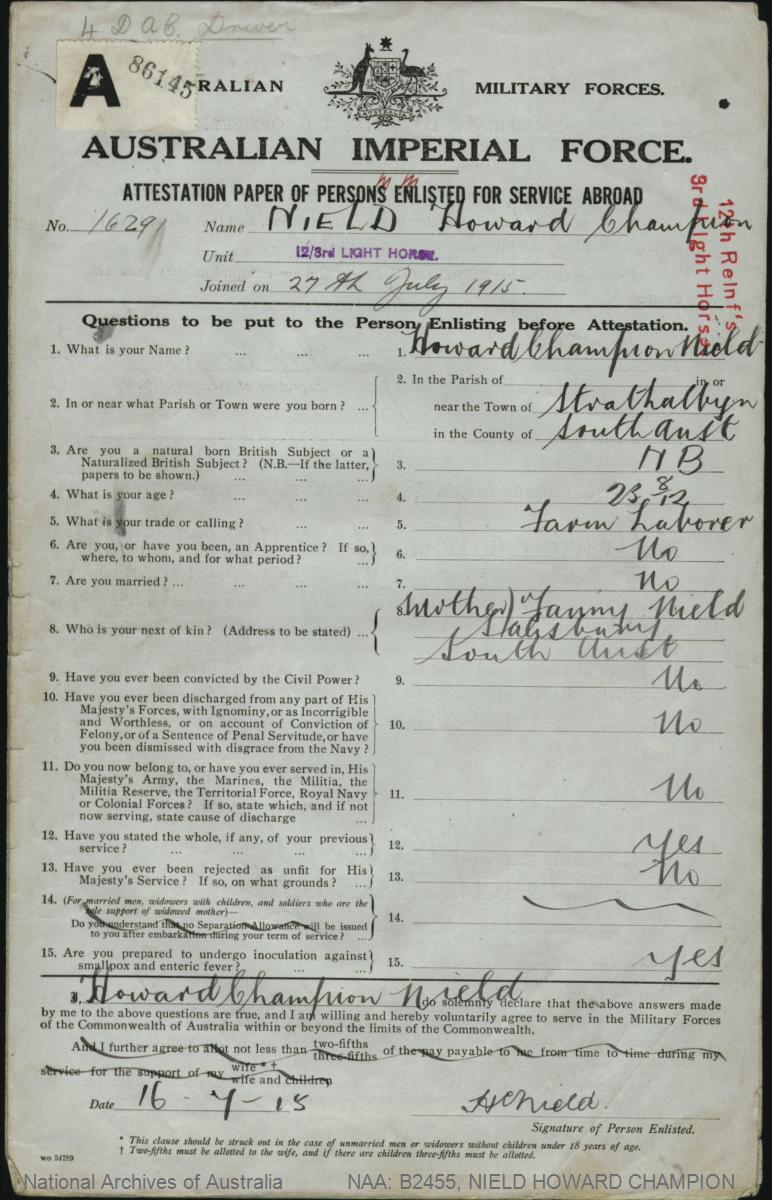 4 D A C. Driver
A 86145
RALIAN MILITARY FORCES.
AUSTRALIA
AUSTRALIAN IMPERIAL FORCE.
M M
ATTESTATION PAPER OF PERSONS ENLISTED FOR SERVICE ABROAD
No. 16291 Name NIELD Howard Champion
Unit 12/3rd LIGHT HORSE.
Joined on 27th July 1915.
12th Reinf's
3rd Light Horse
Questions to be put to the Person Enlisting before Attestation.
1. What is your Name? ... ... ... 1. Howard Champion Nield
2. In or near what Parish or Town were you born? ... 2. In the Parish of in or
near the Town of Strathalbyn
in the County of South Aust
3. Are you a natural born British Subject or a
Naturalized British Subject? (N.B.—If the latter,
papers to be shown.) ... ... ... 3. N B
4. What is your age? ... ... ... 4. 23 8/12
5. What is your trade or calling? ... ... 5. Farm Laborer
6. Are you, or have you been, an Apprentice? If so,
where, to whom, and for what period? ... 6. No
7. Are you married? ... ... ... ... 7. No
8. Who is your next of kin? (Address to be stated) ... 8. Mother) Fanny Nield
Salisbury
South Aust
9. Have you ever been convicted by the Civil Power? 9. No
10. Have you ever been discharged from any part of His
Majesty's Forces, with Ignominy, or as Incorrigible
and Worthless, or on account of Conviction of
Felony, or of a Sentence of Penal Servitude, or have
you been dismissed with disgrace from the Navy? 10. No
11. Do you now belong to, or have you ever served in, His
Majesty's Army, the Marines, the Militia, the
Militia Reserve, the Territorial Force, Royal Navy
or Colonial Forces? If so, state which, and if not
now serving, state cause of discharge ... 11. No
12. Have you stated the whole, if any, of your previous
service? ... ... ... ... 12. yes
13. Have you ever been rejected as unfit for His
Majesty's Service? If so, on what grounds? ... 13. No
14. (For married men, widowers with children, and soldiers who are the
sole support of widowed mother)—
Do you understand that no Separation Allowance will be issued
to you after embarkation during your term of service? ... 14.
15. Are you prepared to undergo inoculation against
smallpox and enteric fever? ... ... 15. yes
I, Howard Champion Nield do solemnly declare that the above answers made
by me to the above questions are true, and I am willing and hereby voluntarily agree to serve in the Military Forces
of the Commonwealth of Australia within or beyond the limits of the Commonwealth.
And I further agree to allot not less than two-fifths three-fifths of the pay payable to me from time to time during my
service for the support of my wife * † wife and children
Date 16 - 7 - 15 HCNield.
Signature of Person Enlisted.
* This clause should be struck out in the case of unmarried men or widowers without children under 18 years of age.
† Two-fifths must be allotted to the wife, and if there are children three-fifths must be allotted.
WO 54789
National Archives of Australia NAA: B2455, NIELD HOWARD CHAMPION